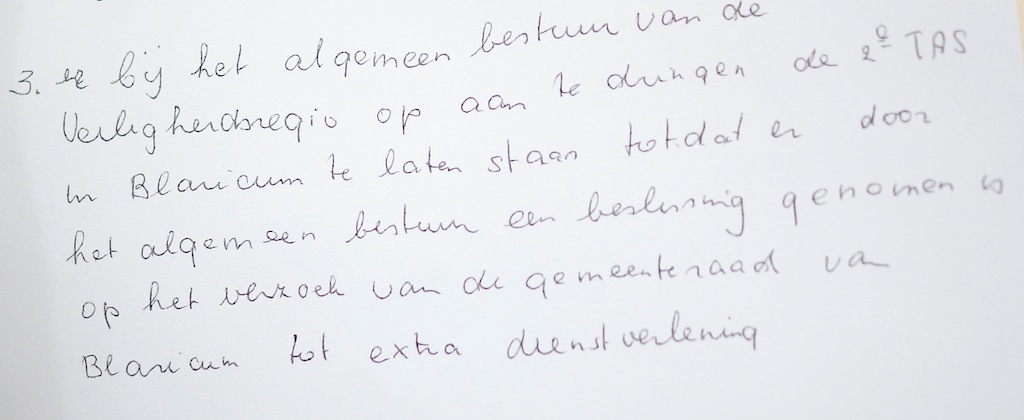 3. er bij het algemeen bestuur van de
Veiligheidsregio op aan te dringen de 2e TAS
in Blaricum te laten staan totdat er door
het algemeen bestuur een beslissing genomen is
op het verzoek van de gemeenteraad van
Blaricum tot extra dienstverlening